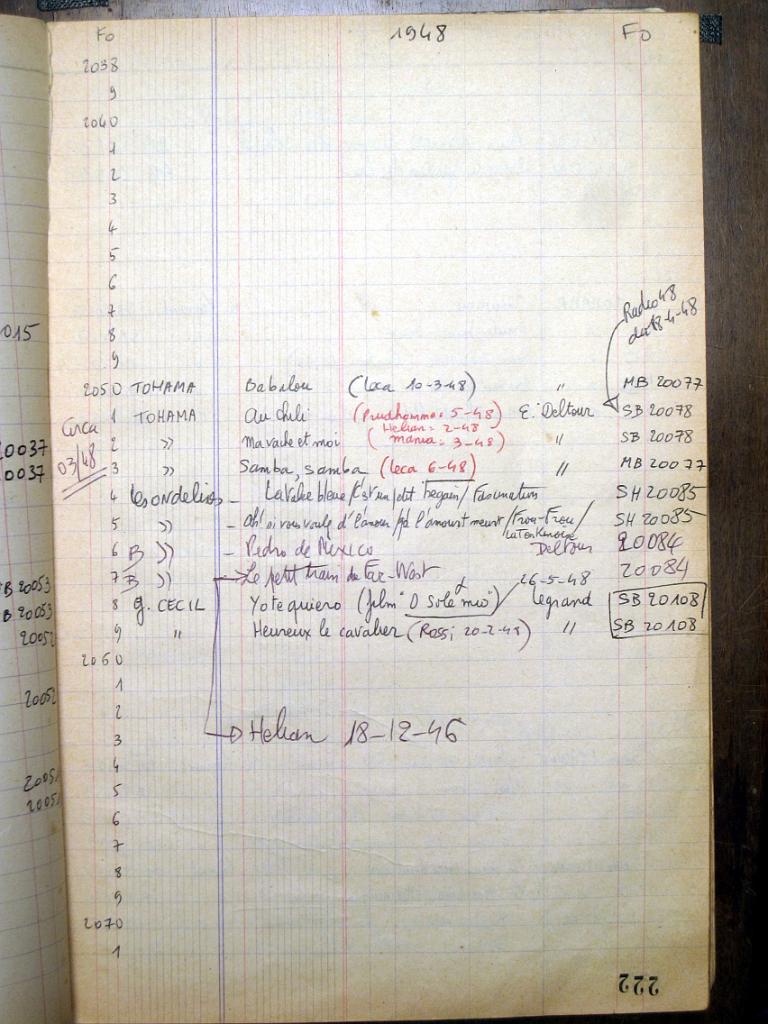 Fo 1948 Fo
2038
9
2040
1
2
3
4
5
6
7 Radio 48
8 du 18-4-48
9
2050 TOHAMA Babalou (Leca 10-3-48) " MB 20077
1 TOHAMA Au Chili (Prudhomme = 5-48) E. Deltour SB 20078
Circa 03/48
Helian = 2-48
2 " Ma vache et moi (Mania = 3-48) " SB 20078
3 " Samba, samba (Leca 6-48) " MB 20077
4 Les Ondelines - La valse bleue / C'est un p'tit béguin / Fascination SH 20085
5 " - Ah! si vous voulez d'l'amour / d'l'amour meurt / Frou-Frou / SH 20085
La Tonkinoise
6 B " - Pedro de Mexico Deltour 20084
7 B " Le petit train du Far-West 20084
26-5-48
8 G. CECIL Yo te quiero (film "O sole mio") / Legrand SB 20108
9 " Heureux le cavalier (Rossi 20-2-48) " SB 20108
2060
1
2
3 Helian 18-12-46
4
5
6
7
8
9
2070
1
222
015
0037
0037
B 20053
B 20053
20052
20052
20051
2005